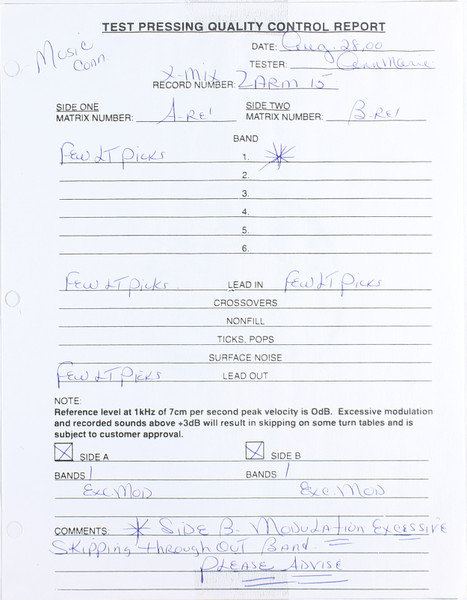 TEST PRESSING QUALITY CONTROL REPORT
Music Conn.
DATE: Aug 28,00
TESTER: AnnMarie
X-Mix
RECORD NUMBER: 2ARM 15
SIDE ONE SIDE TWO
MATRIX NUMBER: A-RE1 MATRIX NUMBER: B-RE1
BAND
Few LT Picks 1. *
2.
3.
4.
5.
6.
Few LT Picks LEAD IN Few LT Picks
CROSSOVERS
NONFILL
TICKS, POPS
SURFACE NOISE
Few LT Picks LEAD OUT
NOTE:
Reference level at 1kHz of 7cm per second peak velocity is OdB. Excessive modulation
and recorded sounds above +3dB will result in skipping on some turn tables and is
subject to customer approval.
SIDE A SIDE B
BANDS 1 BANDS 1
Exc Mod Exc Mod
COMMENTS: * Side B- Modulation Excessive
Skipping through out Band.
Please Advise